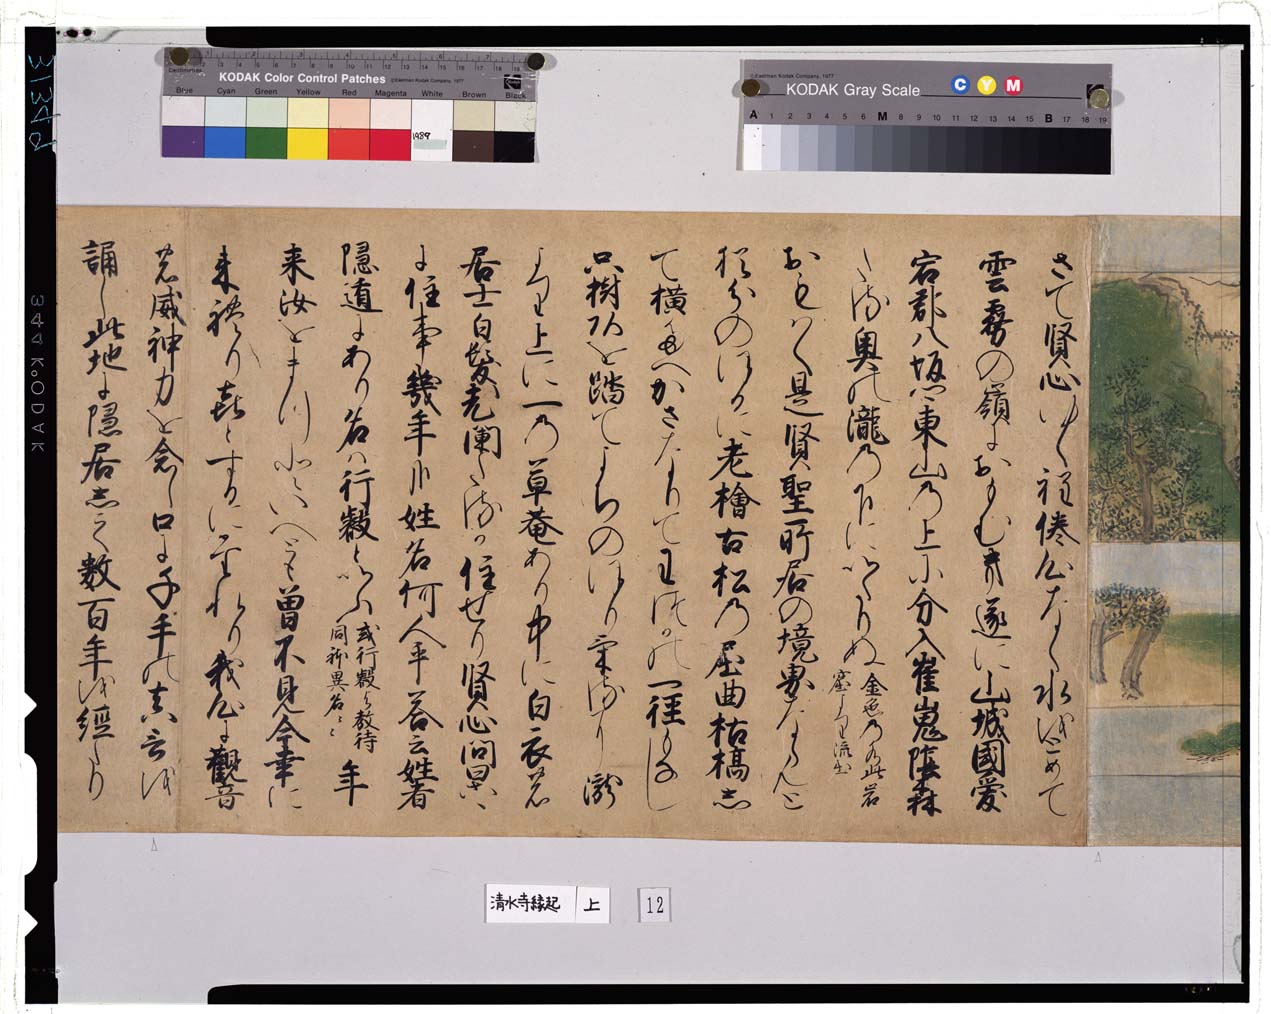 KODAK Color Control Patches
©Eastman Kodak Company, 1977
Centimetres
Blue Cyan Green Yellow Red Magenta White Brown Black
1989
©Eastman Kodak Company, 1977
KODAK Gray Scale
C Y M
A 1 2 3 4 5 6 M 8 9 10 11 12 13 14 15 B 17 18 19
さて賢心ゆく程倦心なく水をとめて
雲霧の嶺におよひ遂に山城國愛
宕郡八坂郷東山の上に分入崔嵬陰森
たる奥の瀧の下にいたりぬ 金色の水此岩
窟より流出
おもはく是賢聖所居の境界ならんと
のほるに老檜古松の屈曲枯槁し
て横たへかさなりて一徑もなし
只樹根を踏てよちのほり 瀧
より上に一の草菴あり中に白衣の
居士白髪老闌たるか住せり賢心問曰
に住事幾年乎姓名何人乎答云姓者
隠遁にあり名ハ行叡といふ 或行叡与教待
同躰異名云々 年
来汝をまつといへとも曽不見今幸に
来れり喜とするに足れり我心に觀音
の威神力を念し口に千手の真言を
誦し此地に隠居して数百年を經たり
清水寺縁起 上 12
344 KODAK